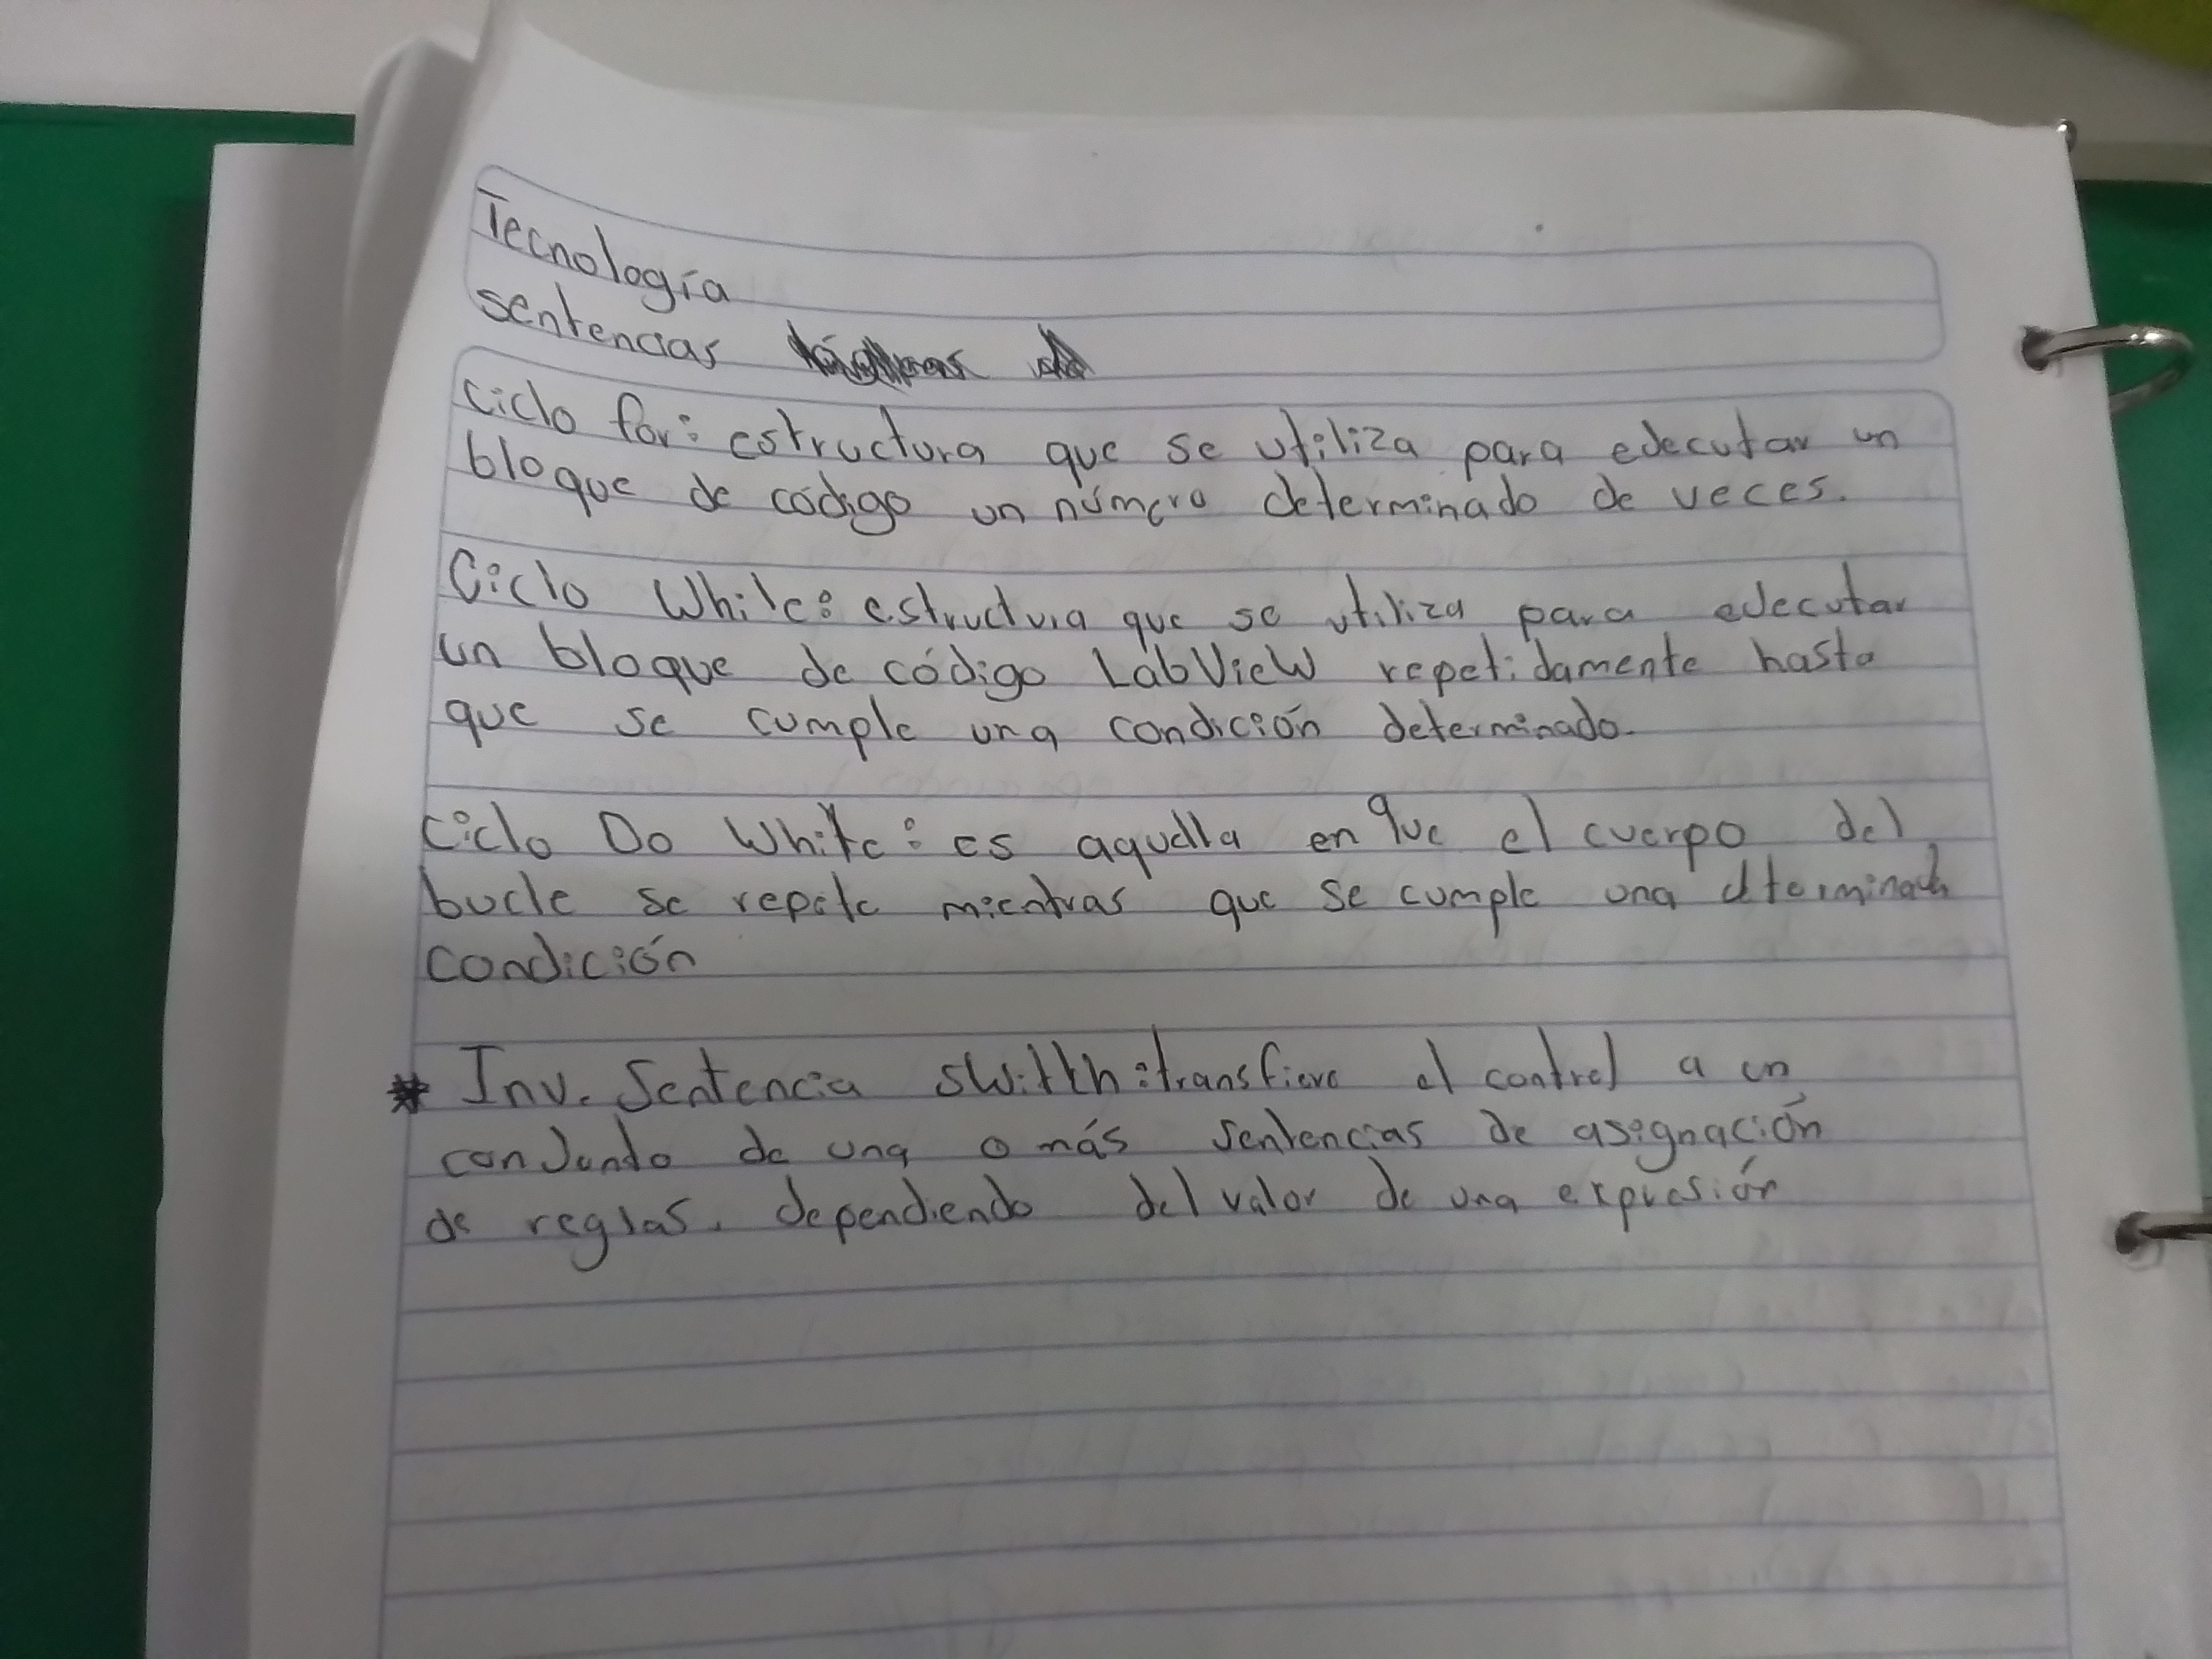 Tecnología
sentencias
Ciclo for: estructura que se utiliza para eJecutar un
bloque de código un número determinado de veces.
Ciclo While: estructura que se utiliza para eJecutar
un bloque de código LabVieW repetidamente hasta
que se cumple una condición determinado.
Ciclo Do While: es aquella en que el cuerpo del
bucle se repite mientras que se cumple una dterminada
condición
* Inv. Sentencia switth: transfiere el control a un
conJunto de una o más sentencias de asignación
de reglas, dependiendo del valor de una expresión